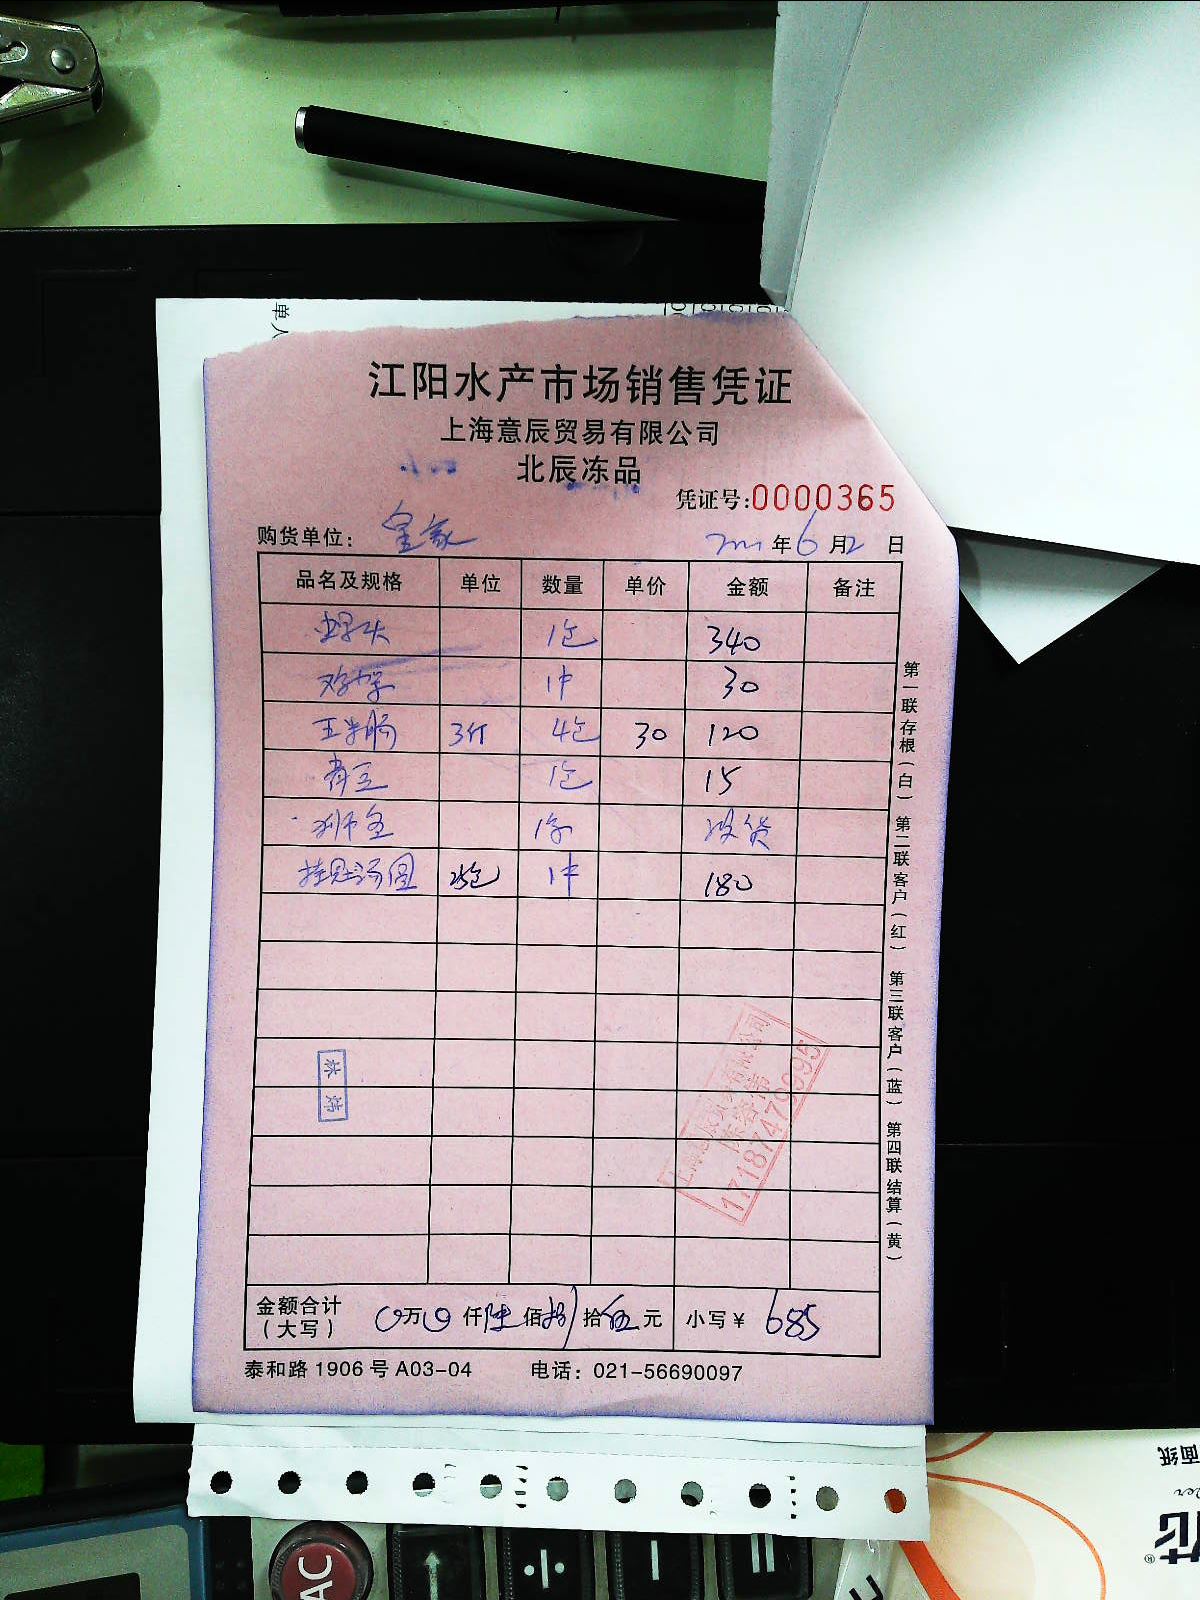 江阳水产市场销售凭证
上海意辰贸易有限公司
北辰冻品
凭证号:0000365
购货单位: 皇家 年6月2日
品名及规格 单位 数量 单价 金额 备注
1包 340
鸡架 1件 30
玉米肠 3斤 4包 30 120
青豆 1包 15
1条 没货
汤圆 1件 180
金额合计(大写) 0万0仟陆佰捌拾伍元 小写¥ 685
泰和路1906号A03-04 电话: 021-56690097
第一联存根(白) 第二联客户(红) 第三联客户(蓝) 第四联结算(黄)
17187479995
AC
÷
=
面纸